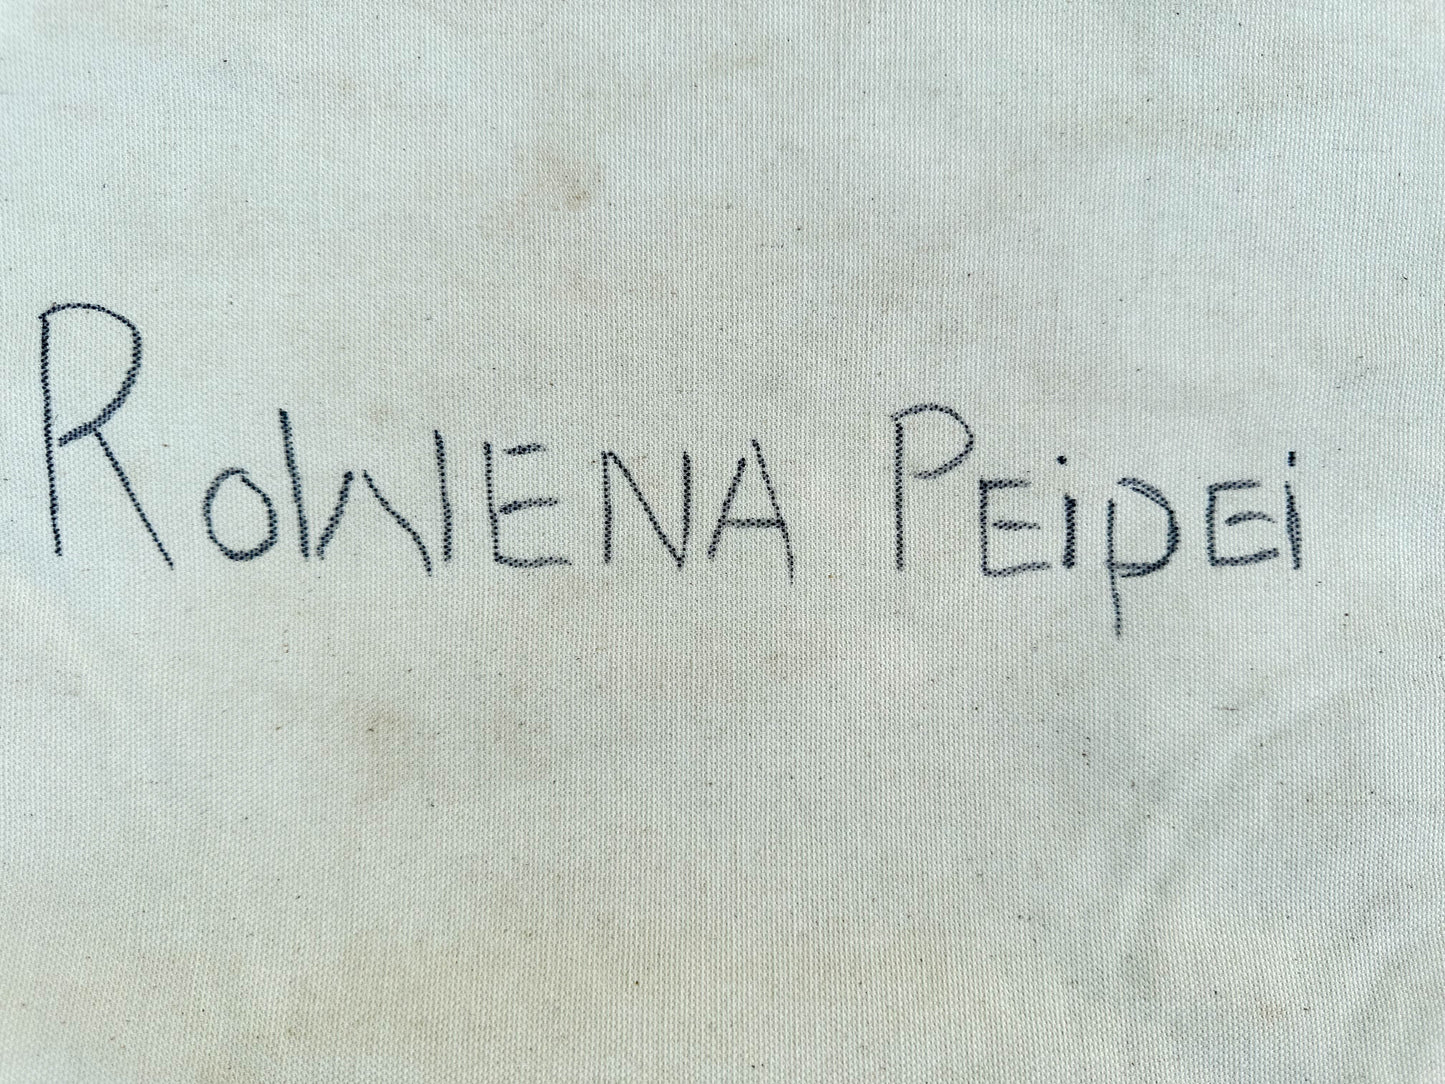 ROWENA PEiPEi